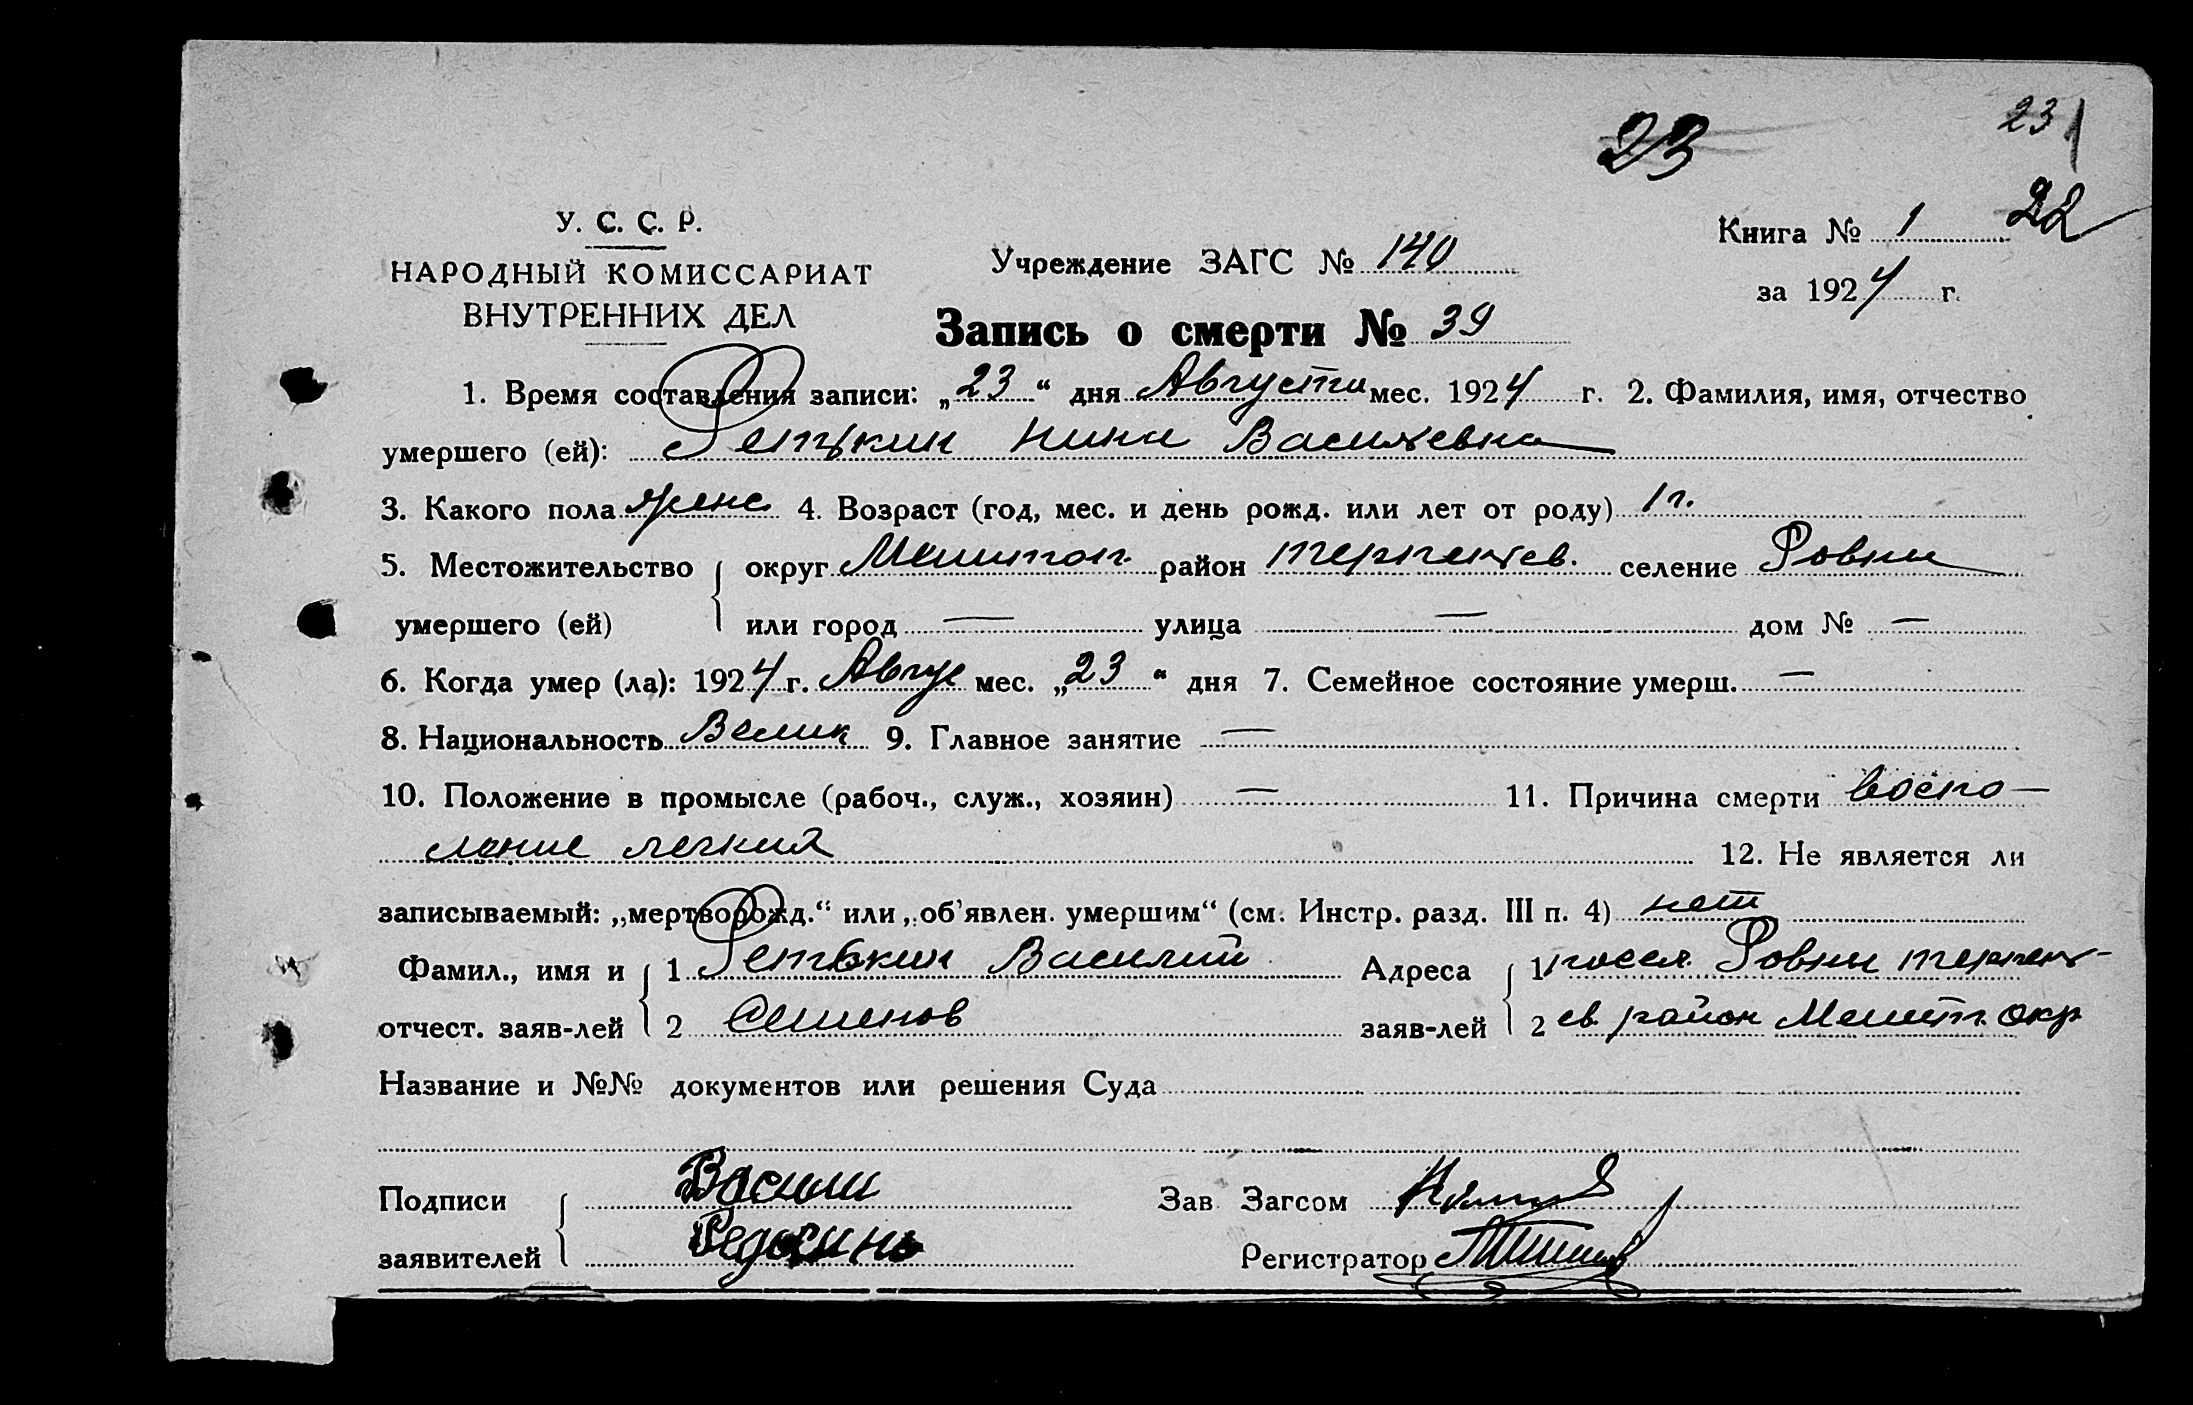 23
23
22
У. С. С. Р.
НАРОДНЫЙ КОМИССАРИАТ
ВНУТРЕННИХ ДЕЛ
Учреждение ЗАГС № 140
Книга № 1
за 1924 г.
Запись о смерти № 39
1. Время составления записи: „23“ дня Августа мес. 1924 г. 2. Фамилия, имя, отчество
умершего (ей): Нина Васильевна
3. Какого пола женс 4. Возраст (год, мес. и день рожд. или лет от роду) 1 г.
5. Местожительство округ Мелитоп. район Терпеньев. селение Ровны
умершего (ей) или город — улица — дом № —
6. Когда умер (ла): 1924 г. Авгус мес. „23“ дня 7. Семейное состояние умерш. —
8. Национальность Велик 9. Главное занятие —
10. Положение в промысле (рабоч., служ., хозяин) — 11. Причина смерти Воспа-
ление легких 12. Не является ли
записываемый: „мертворожд.“ или „об'явлен. умершим“ (см. Инстр. разд. III п. 4) нет
Фамил., имя и 1 Редькин Василий Адреса 1 посел. Ровны Терпень-
отчест. заяв-лей 2 Семенов заяв-лей 2 ев. район Мелит. окр
Название и №№ документов или решения Суда
Подписи Василий Зав Загсом
заявителей Редькинь Регистратор